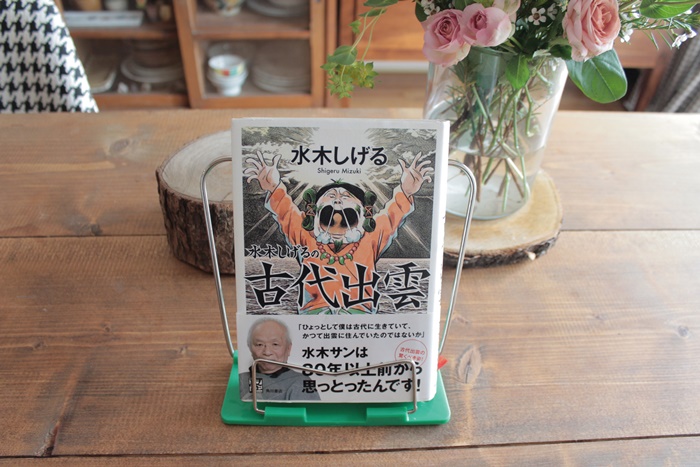 水木しげる
Shigeru Mizuki
水木しげるの
古代出雲
「ひょっとして僕は古代に生きていて、
かつて出雲に住んでいたのではないか」
水木サンは
80年以上前から
思っとったんです!